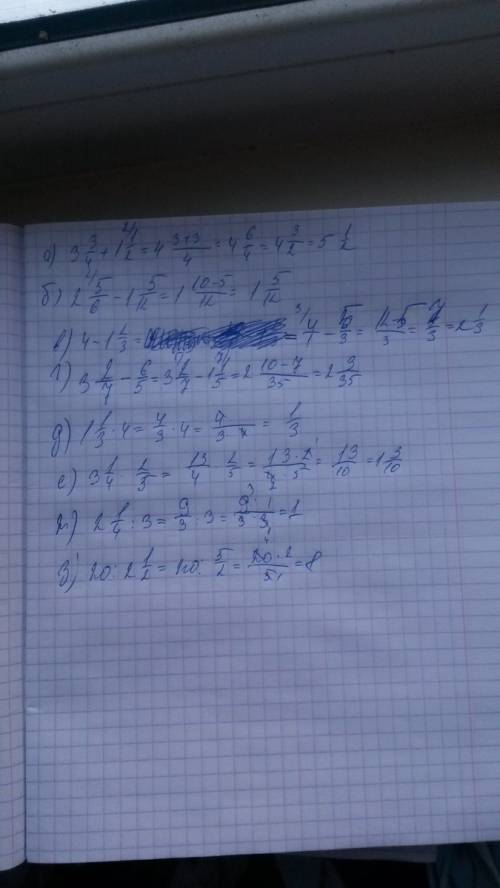 а) 3 3/4 + 1 1/2 = 4 (3+3)/4 = 4 6/4 = 4 3/2 = 5 1/2
б) 2 5/6 - 1 5/12 = 1 (10-5)/12 = 1 5/12
в) 4 - 1 2/3 = = 4/1 - 5/3 = (12-5)/3 = 7/3 = 2 1/3
г) 3 2/7 - 6/5 = 3 2/7 - 1 1/5 = 2 (10-7)/35 = 2 3/35
д) 1 1/3 · 4 = 4/3 · 4 = 4/(3·4) = 1/3
е) 3 1/4 · 2/5 = 13/4 · 2/5 = (13·2)/(4·5) = 13/10 = 1 3/10
2 1/4 : 3 = 9/3 : 3 = (9·1)/(3·3) = 1
з) 20 : 2 1/2 = 20 : 5/2 = (20·2)/5 = 8